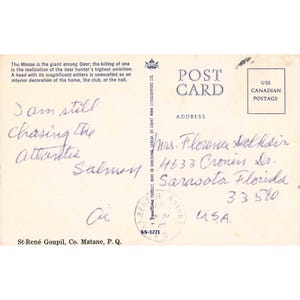 The Moose is the giant among Deer; the killing of one
is the realization of the deer hunter's highest ambition.
A head with its magnificent antlers is unexcelled as an
interior decoration of the home, the club, or the hall.
POST
CARD
USE
CANADIAN
POSTAGE
ADDRESS
I am still
Chasing the
Atlantic
Salmon
Mrs. Florence
4633 Dr.
Sarasota Florida
33580
U.S.A.
St-René Goupil, Co. Matane, P. Q.